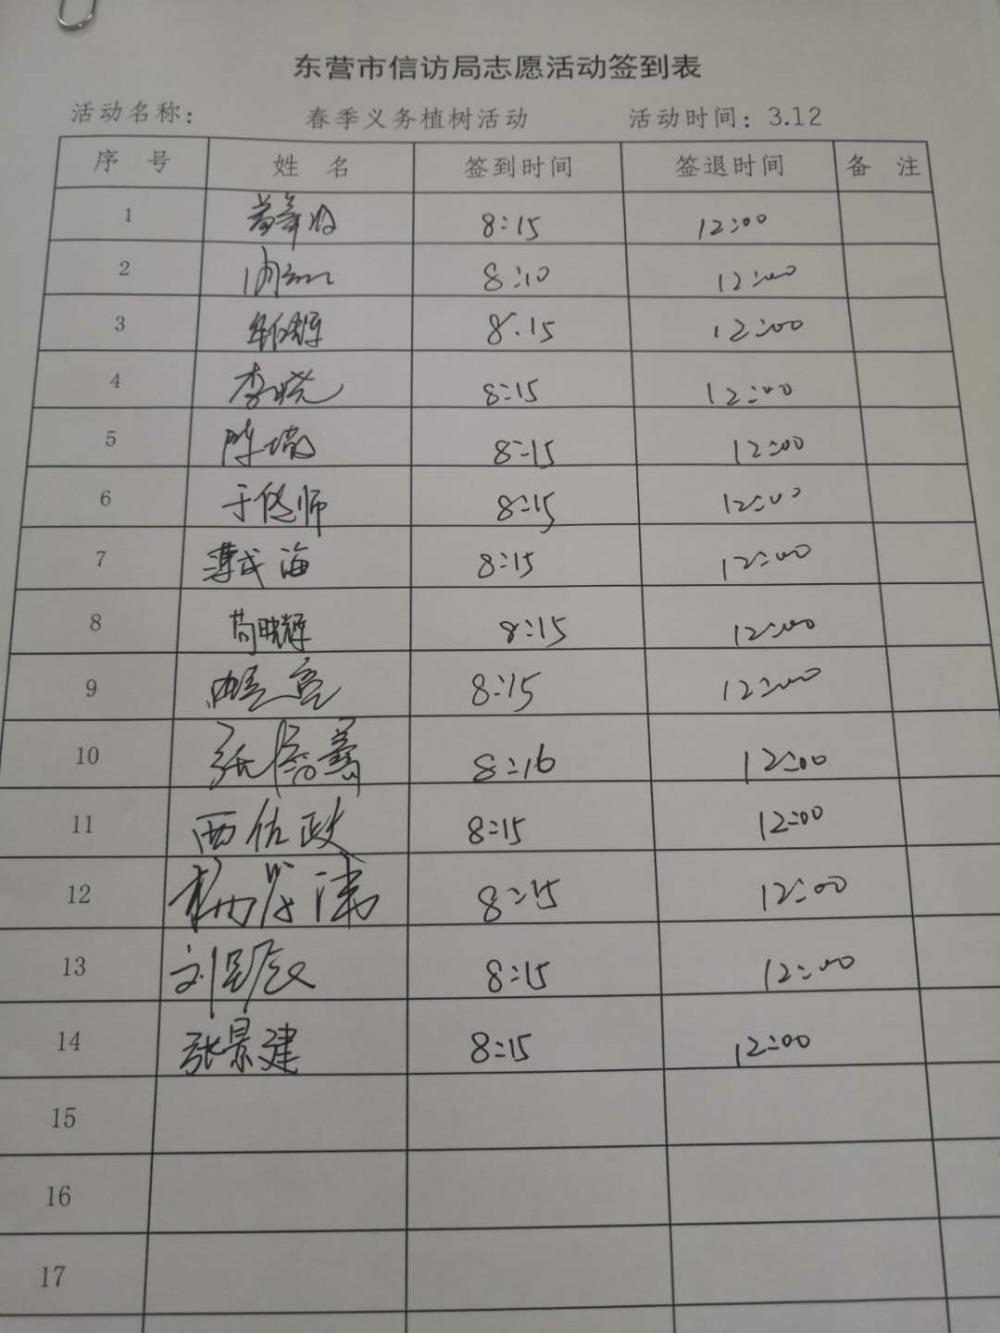 东营市信访局志愿活动签到表
活动名称： 春季义务植树活动 活动时间：3.12
序 号 姓 名 签到时间 签退时间 备 注
1 8:15 12:00
2 8:10 12:00
3 8:15 12:00
4 李晓 8:15 12:00
5 陈瑞 8:15 12:00
6 于 师 8:15 12:00
7 薄成海 8:15 12:00
8 苟晓辉 8:15 12:00
9 8:15 12:00
10 张 8:16 12:00
11 西佐政 8:15 12:00
12 杨 涛 8:15 12:00
13 刘 8:15 12:00
14 张景建 8:15 12:00
15
16
17